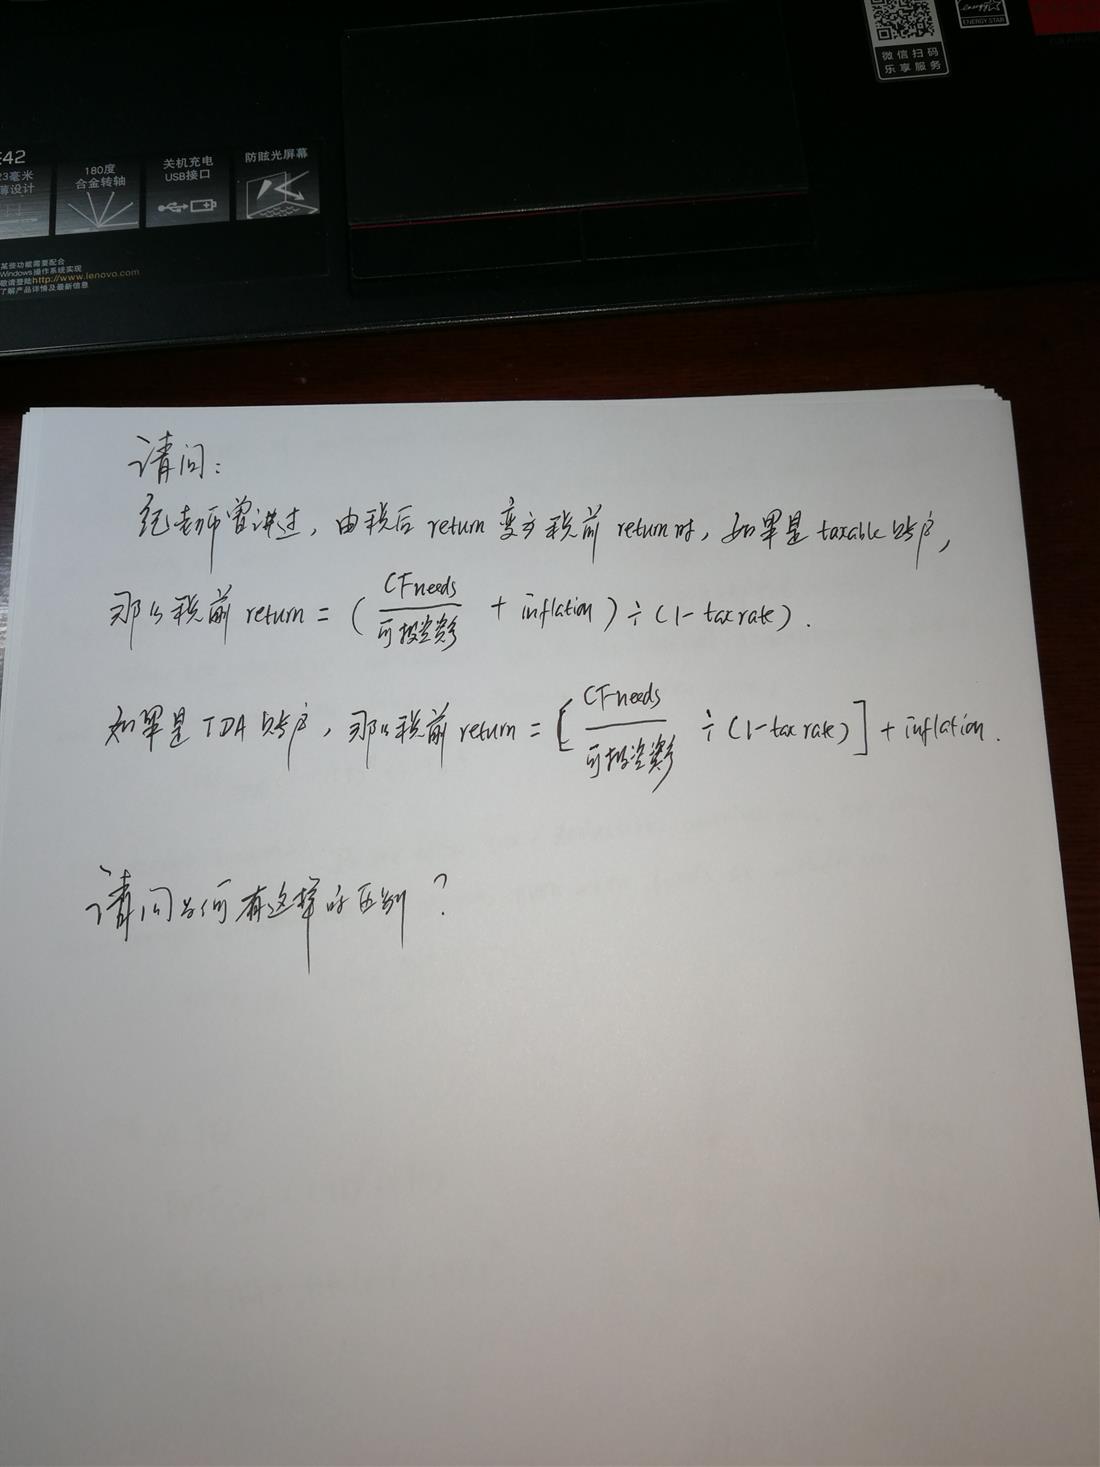 微信扫码
乐享服务
ENERGY STAR
E42
23毫米
薄设计
180度
合金转轴
关机充电
USB接口
防眩光屏幕
某些功能需要配合
Windows操作系统实现
敬请登陆http://www.lenovo.com
了解产品详情及最新信息
请问:
纪老师曾讲过, 由税后 return 变为税前 return时, 如果是 taxable 账户,
那么税前 return = ( CF needs / 可投资资 + inflation ) ÷ (1 - tax rate) .
如果是 TDA 账户, 那么税前 return = [ CF needs / 可投资资 ÷ (1 - tax rate) ] + inflation .
请问为何有这样的区别?